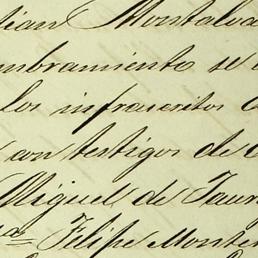 lian Montalvo
mbramiento se
los infrascritos
con testigos de
Miguel de Jaur
Felipe Monte